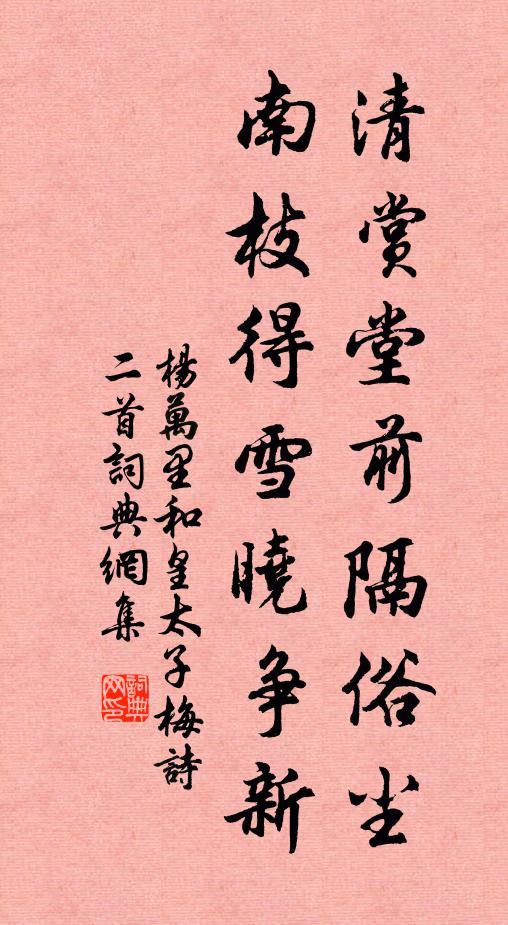 清賞堂前隔俗尘
南枝得雪曉争新
楊萬里和皇太子梅詩
二首詞典網集
詞典
网印